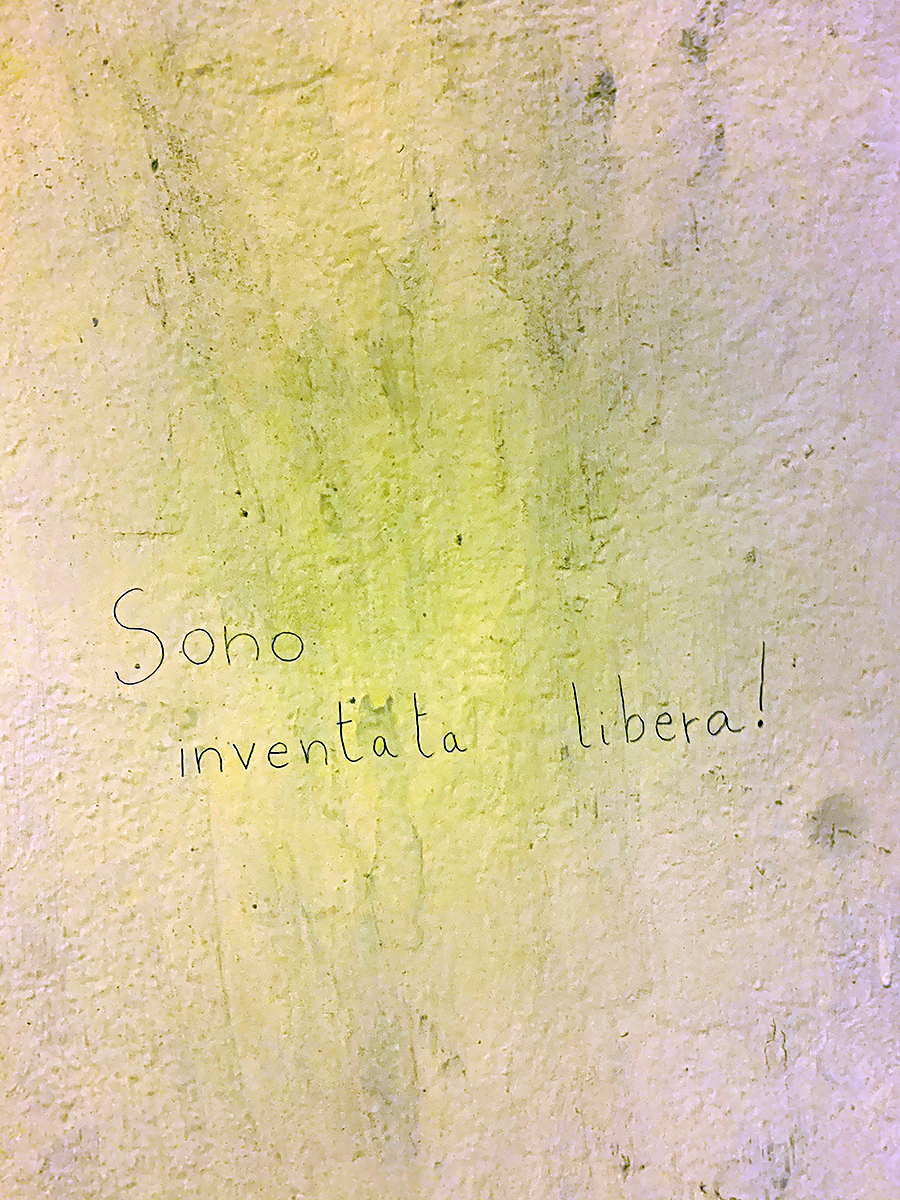 Sono
inventata libera!